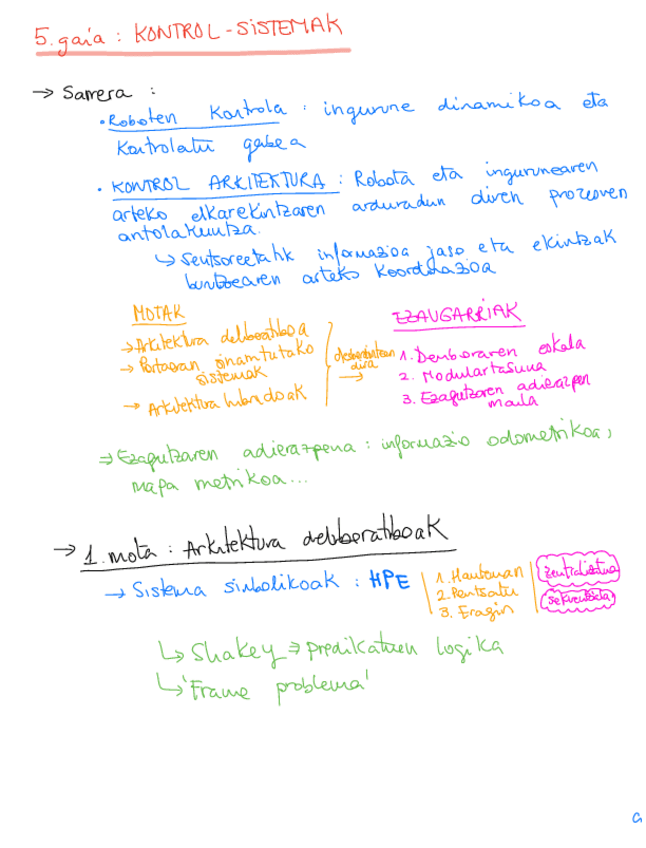 5. gaia : KONTROL - SISTEMAK
→ Sarrera :
• Roboten Kontrola : ingurune dinamikoa eta
Kontrolatu gabea
• KONTROL ARKITEKTURA : Robota eta ingurunearen
arteko elkarekintzaren arduradun diren prozesuen
antolakuntza.
↳ Sentsoreetatik informazioa jaso eta ekintzak
burutzearen arteko koordinazioa
MOTAK
→ Arkitektura deliberatiboa
→ Portaeran oinarritutako
sistemak
→ Arkitektura hibridoak
desberdintzen
dira
→
EZAUGARRIAK
1. Denboraren eskala
2. Modulartasuna
3. Ezagutzaren adierazpen
maila
⇒ Ezagutzaren adierazpena : informazio odometrikoa,
mapa metrikoa...
→ 1. mota : Arkitektura deliberatiboak
→ Sistema sinbolikoak : HPE
1. Hauteman
2. Pentsatu
3. Eragin
zentralizatua
sekuentziala
↳ Shakey ⇒ predikatuen logika
↳ 'Frame problema'